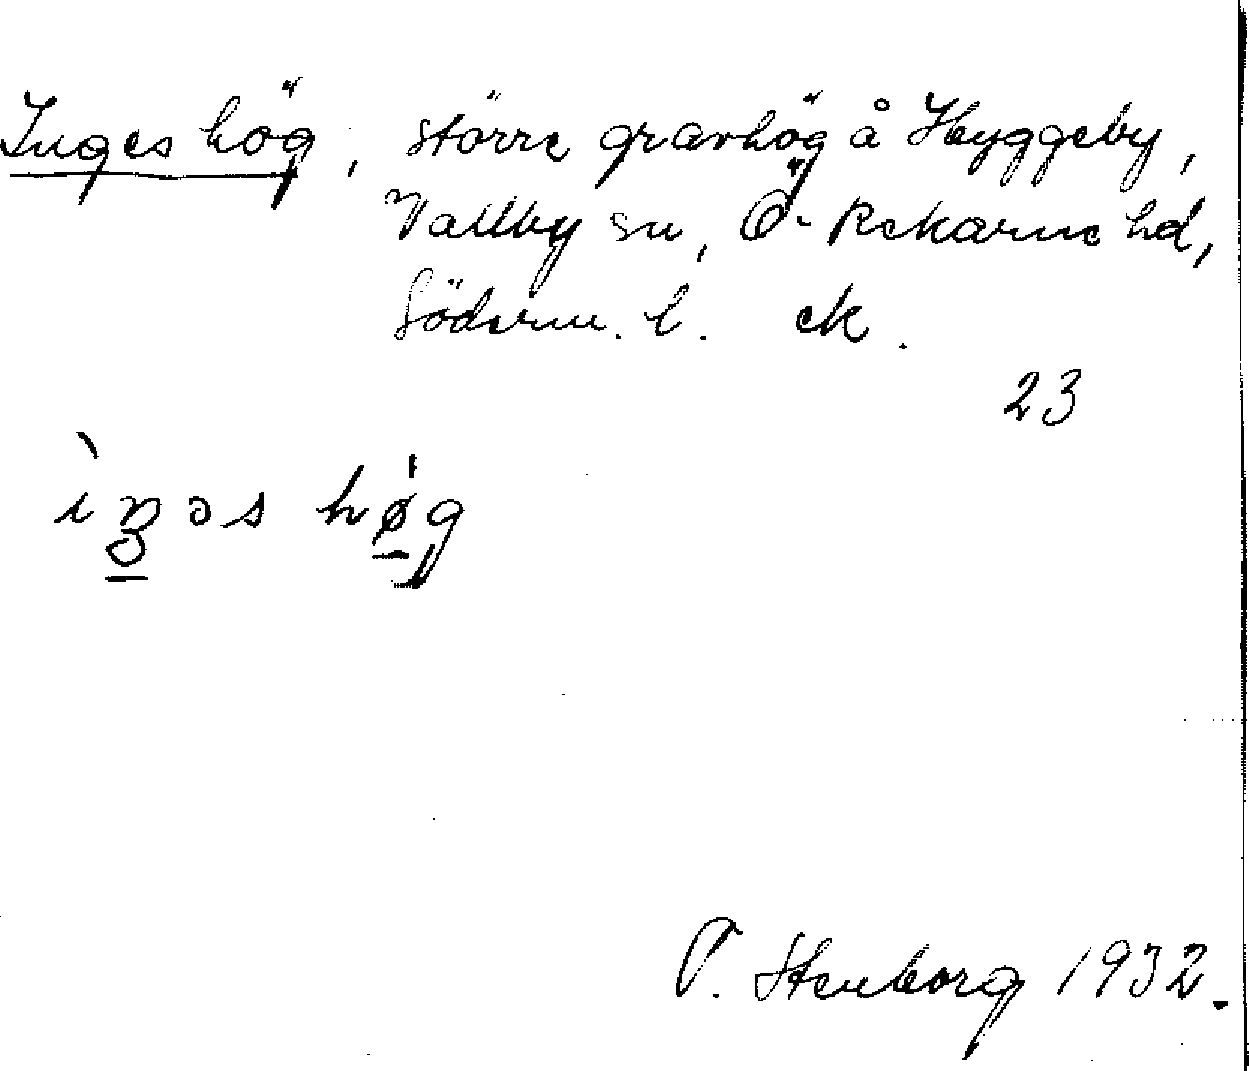 Inges hög, större gravhög å Hyggeby,
Vallby sn, Ö. Rekarne hd,
Söderm. l. ek.
23
ìŋəs hǿg
T. Stenborg 1932.